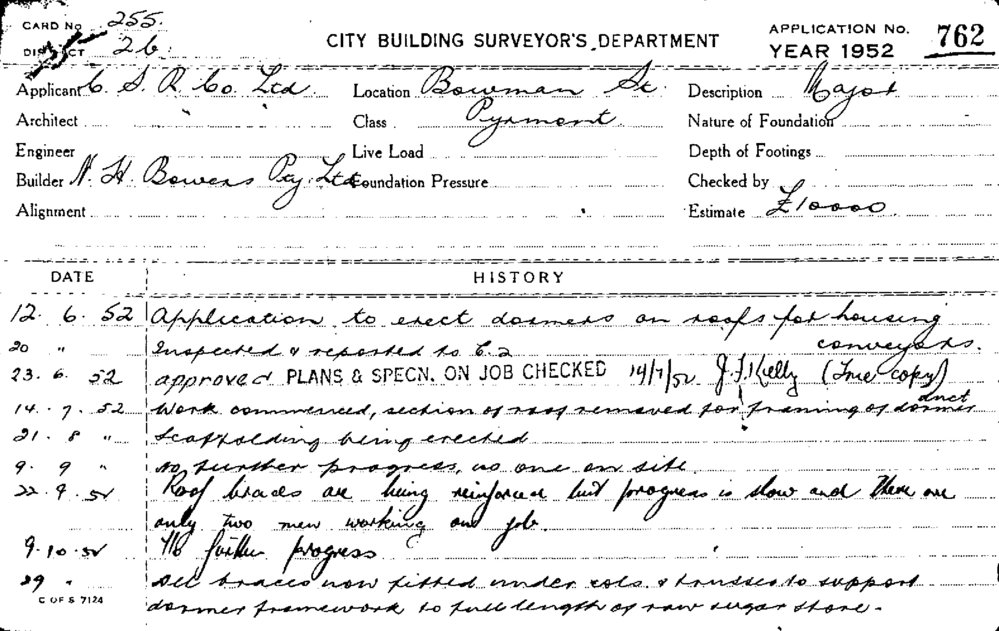 CARD No 255.
DISTRICT 26.
CITY BUILDING SURVEYOR'S DEPARTMENT
APPLICATION No. 762
YEAR 1952
Applicant C. S. R. Co. Ltd. Location Bowman St. Description Major
Architect Class Pyrmont. Nature of Foundation
Engineer Live Load Depth of Footings
Builder N. H. Bowers Pty. Ltd. Foundation Pressure Checked by
Alignment Estimate £10000
DATE HISTORY
12. 6. 52 Application to erect dormers on roofs for housing
conveyors.
20 " Inspected & reported to C.2
23. 6. 52 approved PLANS & SPECN. ON JOB CHECKED 14/7/52 J.F. Kelly (True copy)
14. 7. 52 Work commenced, section of roof removed for framing of dormer duct
21. 8 " Scaffolding being erected
9. 9 " No further progress, no one on site.
22. 9. 52 Roof braces are being reinforced but progress is slow and there are
only two men working on job.
9. 10. 52 No further progress
29 " All braces now fitted under cols. & trusses to support
C OF S 7124
dormer framework to full length of raw sugar store.